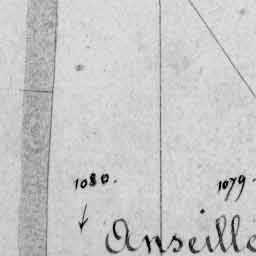 1080.
1079.
Anseille